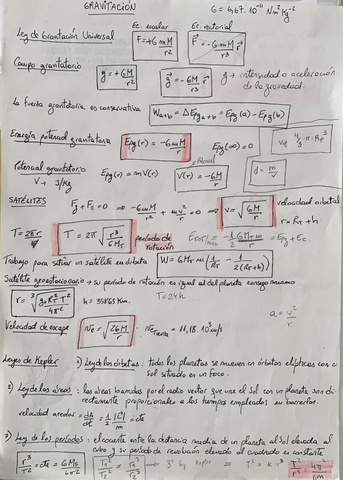 GRAVITACIÓN G = 6,67·10⁻¹¹ Nm² Kg⁻²
Ec. escalar Ec. vectorial
Ley de Gravitación Universal F = +GmM/r² F⃗ = -GmM/r³ r⃗
Campo gravitatorio g = +GM/r² g⃗ = -GM/r³ r⃗ g → intensidad o aceleración de la gravedad.
La fuerza gravitatoria es conservativa W a→b = -ΔEpg a→b = Epg(a) - Epg(b)
Energía potencial gravitatoria Epg(r) = -GmM/r Epg(∞) = 0 4/3·π·R_T³
Potencial gravitatorio Epg(r) = mV(r) V(r) = -GM/r d = m/v
V → J/Kg
SATÉLITES Fg + Fc = 0 ⇒ -GmM/r² + mv²/r = 0 → v = √(GM/r) velocidad orbital
r = R_T + h
T = 2πr/v T = 2π √(r³/GM_T) período de rotación -1/2 GM_T m/r = Epg + Ec
Trabajo para situar un satélite en órbita W = GM_T m (1/R_T - 1/2(R_T+h))
Satélite geoestacionario → su período de rotación es igual al del planeta consigo mismo
r = ∛(g₀R_T²T²/4π²) h = 35865 Km. T = 24h
a = v²/r
Velocidad de escape ve = √(2GM/r) ve Tierra = 11,18·10³ m/s
Leyes de Kepler 1) Ley de las órbitas: todos los planetas se mueven en órbitas elípticas con el sol situado en un foco.
2) Ley de las áreas: las áreas barridas por el radio vector que une el Sol con un planeta son directamente proporcionales a los tiempos empleados en barrerlas.
velocidad areolar = dA/dt = 1/2 |L⃗|/m = cte
3) Ley de los períodos: el cociente entre la distancia media de un planeta al Sol elevada al cubo y su período de revolución elevado al cuadrado es constante
r³/T² = cte = GMs/4π² 3ª ley Kepler → T² = k·r³ T²/r³ = 4π²/GM